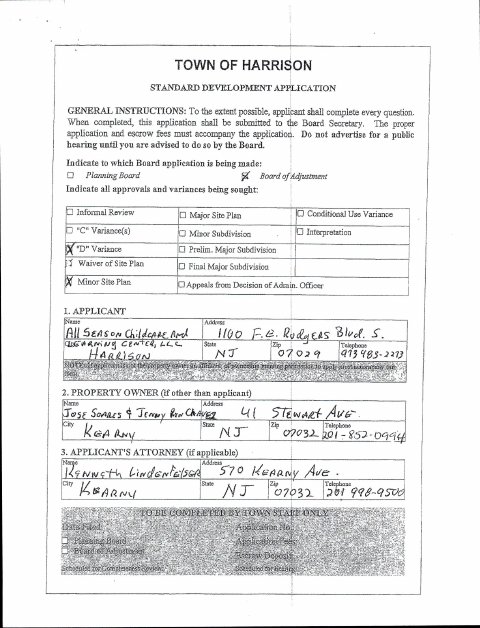 TOWN OF HARRISON
STANDARD DEVELOPMENT APPLICATION
GENERAL INSTRUCTIONS: To the extent possible, applicant shall complete every question.
When completed, this application shall be submitted to the Board Secretary. The proper
application and escrow fees must accompany the application. Do not advertise for a public
hearing until you are advised to do so by the Board.
Indicate to which Board application is being made:
☐ Planning Board ☒ Board of Adjustment
Indicate all approvals and variances being sought:
☐ Informal Review ☐ Major Site Plan ☐ Conditional Use Variance
☐ "C" Variance(s) ☐ Minor Subdivision ☐ Interpretation
☒ "D" Variance ☐ Prelim. Major Subdivision
Waiver of Site Plan ☐ Final Major Subdivision
☒ Minor Site Plan ☐ Appeals from Decision of Admin. Officer
1. APPLICANT
Name Address
All Season Childcare And 1100 F.E. Rodgers Blvd. S.
Learning Center, LLC State Zip Telephone
Harrison NJ 07029 973 483-2273
2. PROPERTY OWNER (if other than applicant)
Name Address
Jose Soares & Jenny 41 Stewart Ave.
City State Zip Telephone
Kearny NJ 07032 201-852-0994
3. APPLICANT'S ATTORNEY (if applicable)
Name Address
Kenneth Lindenfelser 570 Kearny Ave.
City State Zip Telephone
Kearny NJ 07032 201 998-9500
TO BE COMPLETED BY TOWN STAFF ONLY
Date Filed Application No.
☐ Planning Board Application Fees
☐ Board of Adjustment Escrow Deposit
Scheduled for Completeness Review Scheduled for Hearing